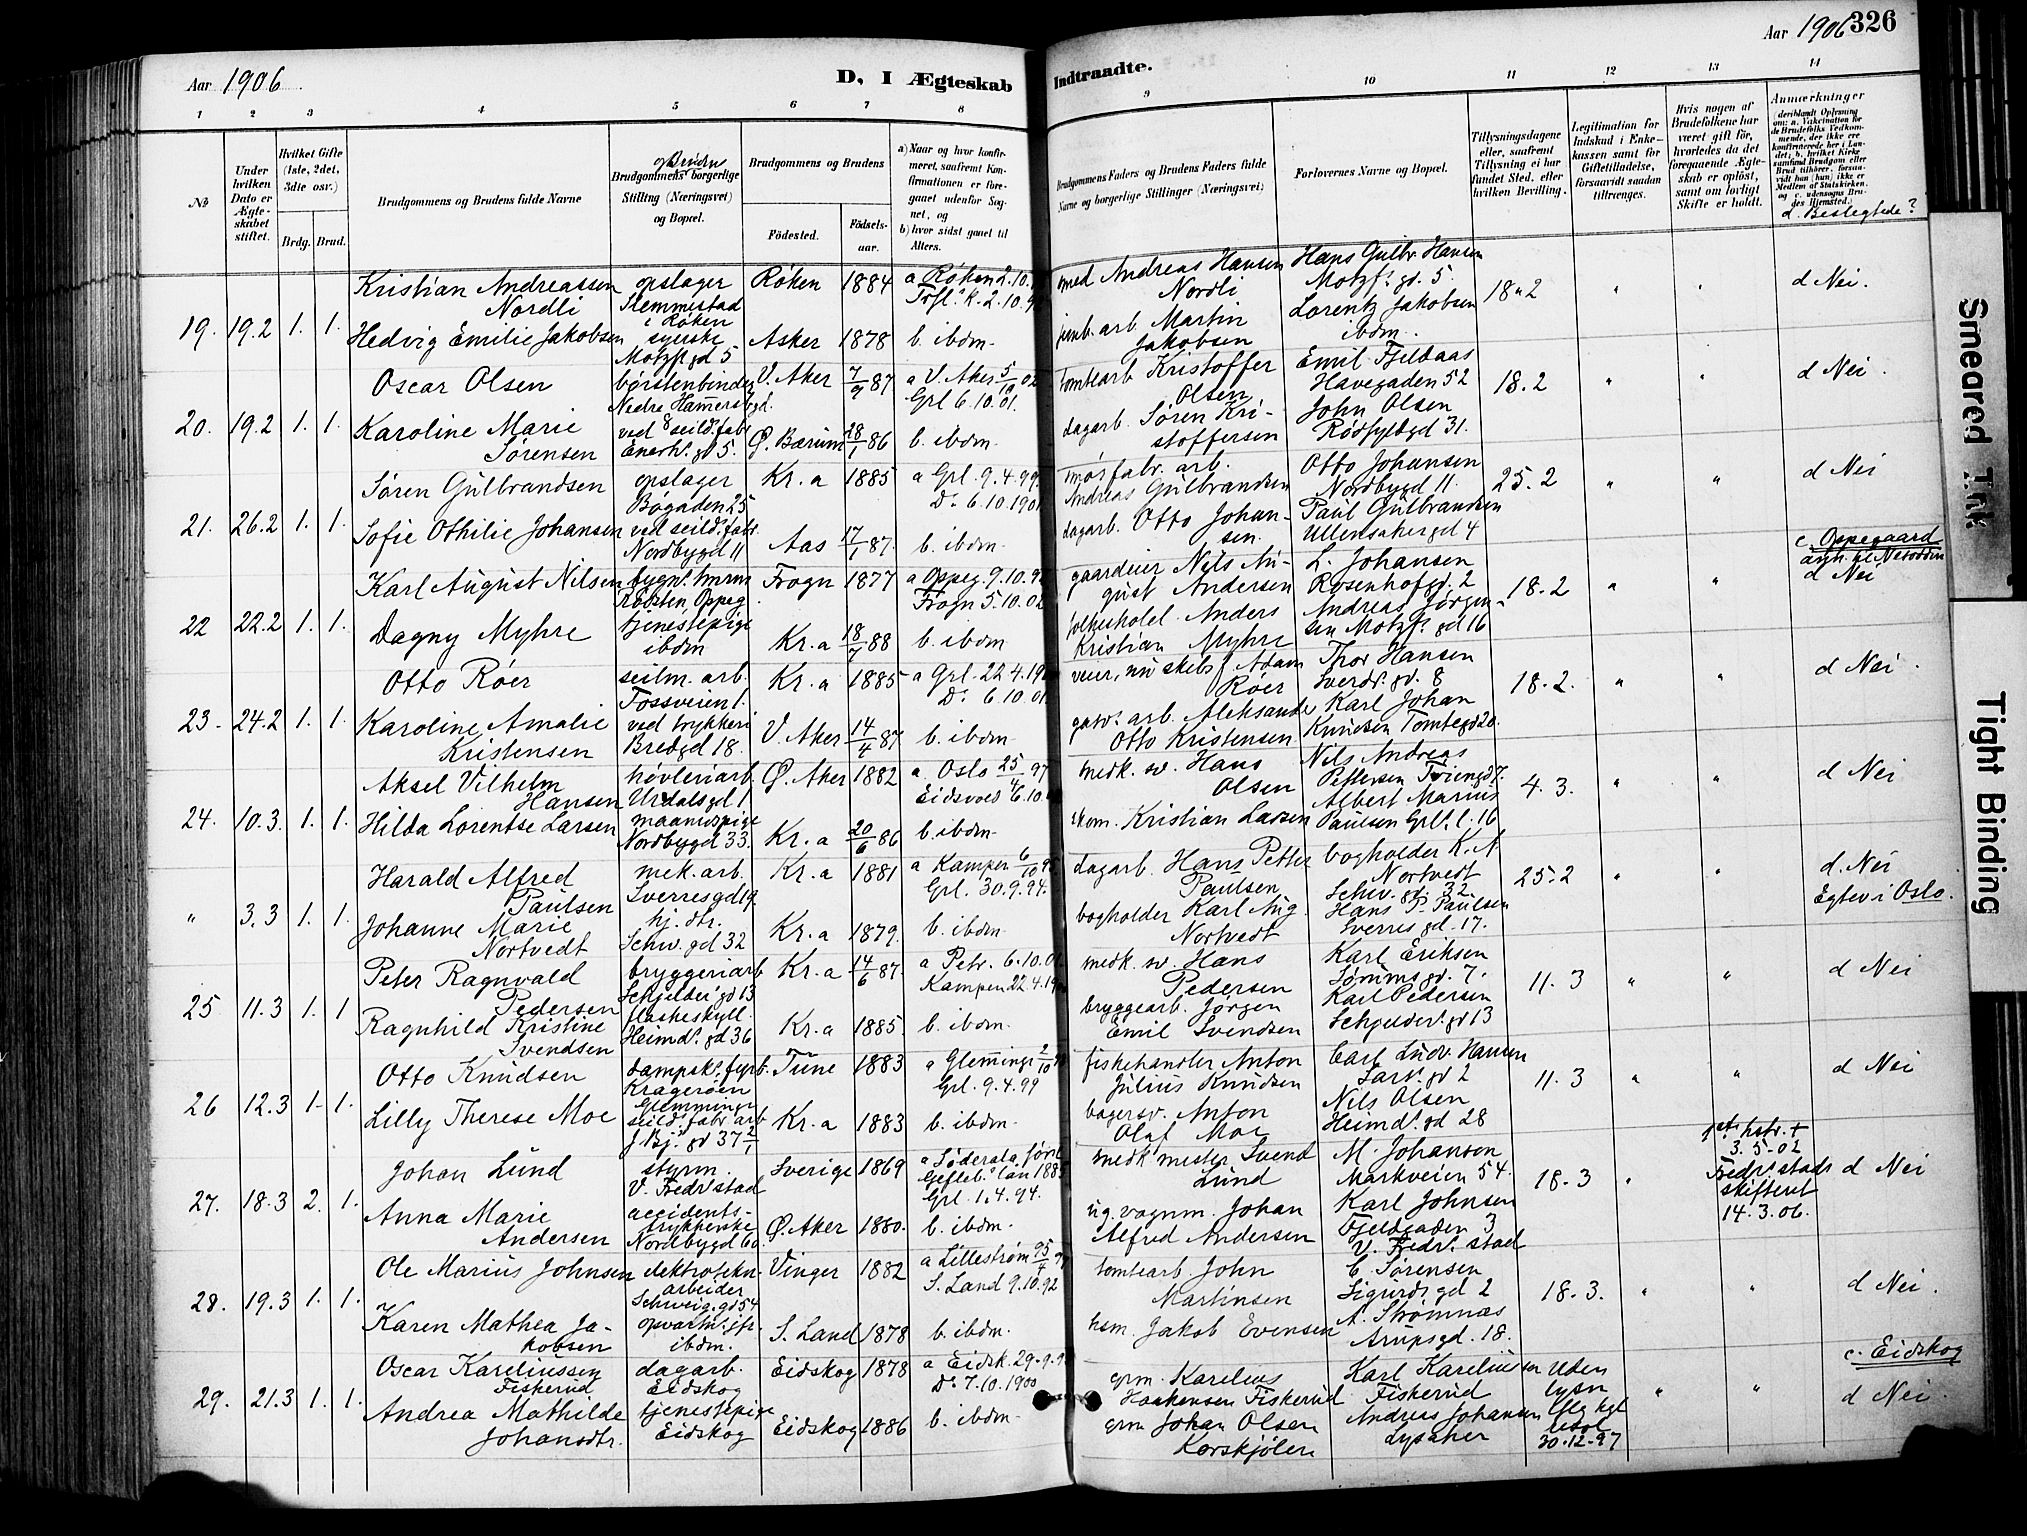 Aar 1906
D, I Ægteskab
Indtraadte.
Aar 1906 326
1 2 3 4 5 6 7 8 9 10 11 12 13 14
No
Under hvilken Dato er Ægteskabet stiftet.
Hvilket Gifte (1ste, 2det, 3dte osr.)
Brdg. Brud.
Brudgommens og Brudens fulde Navne
Brudgommens og Brudens borgerlige Stilling (Næringsvei) og Bopæl.
Brudgommens og Brudens
Födested.
Födselsaar.
a) Naar og hvor konfirmeret, saafremt Konfirmationen er foregaaet udenfor Sognet, og
b) hvor sidst gaaet til Alters.
Brudgommens Faders og Brudens Faders fulde Navne og borgerlige Stillinger (Næringsvei)
Forlovernes Navne og Bopæl.
Tillysningsdagene eller, saafremt Tillysning ei har fundet Sted, efter hvilken Bevilling.
Legitimation for Indskud i Enkekassen samt for Giftetilladelse, forsaavidt saadan tiltrænges.
Hvis nogen af Brudefolkene har været gift før, hvorledes da det foregaaende Ægteskab er opløst, samt om lovligt Skifte er holdt.
Anmærkninger
(deriblandt Oplysning om: a. Vakcination for de Brudefolks Vedkommende, der ikke ere konfirmerede her i Landet; b. hvilket Kirkesamfund Brudgom eller Brud tilhører, forsaavidt han (hun) ikke er Medlem af Statskirken, og c. udensogns Brudges Hjemsted.)
d. Beslegtede?
19. 19.2 1. 1.
Kristian Andreassen Nordli
opslager Slemmestad i Røken
Røken 1884
a Røken 2.10.
med Andreas Hansen Nordli
Hans Gulbr. Hansen Motzf. gd. 5
18.2 " "
d Nei.
Hedvig Emilie Jakobsen
syerske Motzf. gd 5
Asker 1878
b. ibdm.
jernb. arb Martin Jakobsen
Lorentz Jakobsen ibdm.
20. 19.2 1. 1.
Oscar Olsen
børstenbinder Nedre Hammersb.gd. 8
V. Aker 7/9 87
a V. Aker 5/10 02
Grl 6.10.01.
tomtearb Kristoffer Olsen
Emil Fjeldaas Havegaden 52
18.2 " "
d Nei.
Karoline Marie Sørensen
ved seild. fabr Enerh. gd 5.
Ø. Bærum 28/1 86
b. ibdm.
dagarb. Søren Kristoffersen
John Olsen Rødfyldgd 31.
21. 26.2 1. 1.
Søren Gulbrandsen
opslager Bøgaden 25
Kr. a 1885
a Grl. 9.4.99.
Do 6.10.1901
Andreas Gulbrandsen
Otto Johansen Nordbygd 11
25.2 " "
d Nei
Sofie Othilie Johansen
ved seild. fabr. Nordbygd 11
Aas 17/1 87.
b. ibdm.
dagarb. Otto Johansen
Paul Gulbrandsen Ullensakergd 4
22 22.2 1. 1.
Karl August Nilsen
Oppeg
Frogn 1877
a Oppeg. 9.10.92
Frogn 5.10.02
gaardeier Nils August Andersen
L. Johansen Rosenhofgd. 2
18.2 " "
c. Oppegaard
d Nei
Dagny Myhre
tjenestepige ibdm
Kr. a 18/7 88
b. ibdm
Anders Kristian Myhre
Andreas Jørgensen Motzf. gd 16
23. 24.2 1. 1.
Otto Röer
seilm. arb. Fossveien 1.
Kr. a 1885
a Grl. 22.4.19
Do. 6.10.01
Adam Röer
Thor Hansen Sverdr. gd. 8
18.2. " "
d Nei.
Karoline Amalie Kristensen
ved trykkeri Bredgd 18.
V. Aker 14/4 87
b. ibdm
gasv. arb. Aleksander Otto Kristensen
Karl Johan Knudsen Tomtegd 20.
24. 10.3. 1. 1.
Aksel Vilhelm Hansen
høvleriarb. Urdalsgd 1
Ø. Aker 1882
a. Oslo 25/4 97
Eidsvold 6.10.
medk. sv. Hans Olsen
Nils Andreas Pettersen
4.3. " "
d Nei
Hilda Lorentse Larsen
maanedspige Nordbygd 33.
Kr. a 20/6 86
b. ibdm.
skom. Kristian Larsen
Albert Marius Paulsen Grl. l. 16
" 3.3 1. 1.
Harald Alfred Paulsen
mek. arb. Sverresgd 19
Kr. a 1881
a Kampen 6/10 95
Grl. 30.9.94.
dagarb. Hans Petter Paulsen
bogholder K. A Nortvedt Schw. gd. 32
25.2 " "
d. Nei
Egtev i Oslo.
Johanne Marie Nortvedt
hj. dtr. Schw. gd 32
Kr. a 1879.
b. ibdm
bogholder Karl Aug. Nortvedt
Hans P. Paulsen Sverres gd. 17.
25 11.3 1. 1
Peter Ragnvald Pedersen
bryggeriarb Schjelder. gd 13
Kr. a 14/6 87.
a Petr. 6.10.01
Kampen 22.4.19
medk. sv. Hans Pedersen
Karl Eriksen Sørums gd. 7.
11.3 " "
d Nei
Ragnhild Kristine Svendsen
flaskeskyll. Heimd. gd 36
Kr. a 1885
b. ibdm.
bryggearb. Jørgen Emil Svendsen
Karl Pedersen Schjelder. gd 13
26 12.3 1. 1.
Otto Knudsen
dampsk. fyrb. Kragerøen Glemminge
Tune 1883
a Glemminge 2/10
Grl. 9.4.99
fiskehandler Anton Julius Knudsen
Carl Ludv. Hansen Larv. gd 2
11.3 " "
d Nei
Lilly Therese Moe
seild. fabr arb
Kr. a 1883
b. ibdm.
bagersv. Anton Olaf Moe
Nils Olsen Heimd. gd 28
27. 18.3 2. 1.
Johan Lund
styrm. V. Fredr.stad
Sverige 1869
a Söderala
Grl. 1.4.94.
Svend Lund
M. Johanson Markveien 54.
18.3 "
3.5-02 Fredr.stads skifteret 14.3.06.
d Nei
Anna Marie Andersen
accidents-trykkerske Nordbygd 60
Ø. Aker 1880.
b. ibdm.
vognm. Johan Alfred Andersen
Karl Johnsen Fjeldgaden 3 V. Fredr. stad
28. 19.3 1. 1.
Ole Marius Johnsen
elektrotekn. arbeider Schweig. gd 54
Vinger 1882
a Lillestrøm
S. Land 9.10.92
tomtearb. John Martinsen
C. Sørensen Sigurds gd 2
18.3. " "
d Nei.
Karen Mathea Jakobsen
opvartn. jfr. ibdm.
S. Land 1878
b. ibdm.
hsm. Jakob Evensen
A. Strømnæs Arupsgd. 18.
29. 21.3 1. 1.
Oscar Kareliussen Fiskerud
dagarb. Eidskog
Eidskog 1878
a Eidsk. 29.9.
Do 7.10.1900
grm. Karelius Haakensen Fiskerud
Karl Kareliussen Fiskerud
Uden lysn iflg kgl resol 30.12.97
" "
c. Eidskog
d Nei.
Andrea Mathilde Johansdtr.
tjenestepige Eidskog
Eidskog 1886
b. ibdm.
grm Johan Olsen Korskjölen
Andreas Johansen Lysaker
Smeared Ink
Tight Binding